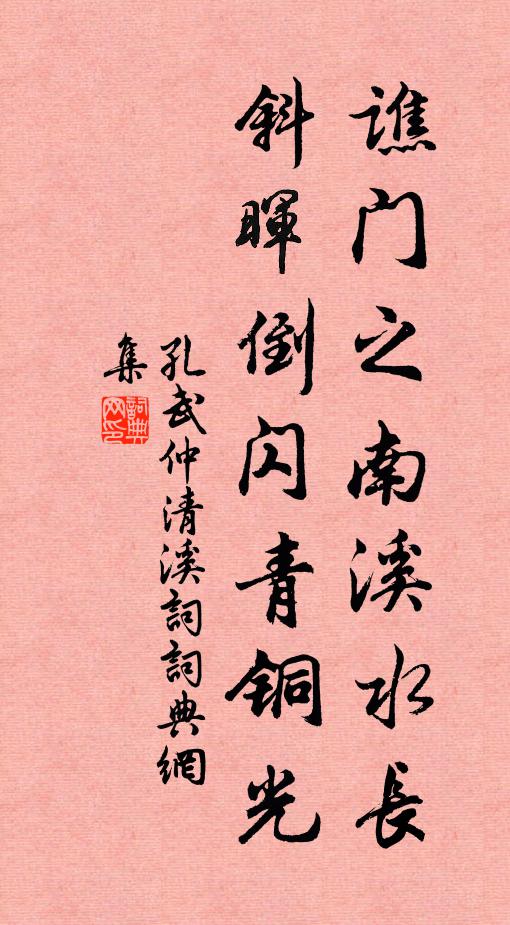 譙門之南溪水長
斜暉倒闪青銅光
孔武仲清溪詞詞典網
集
詞典网印